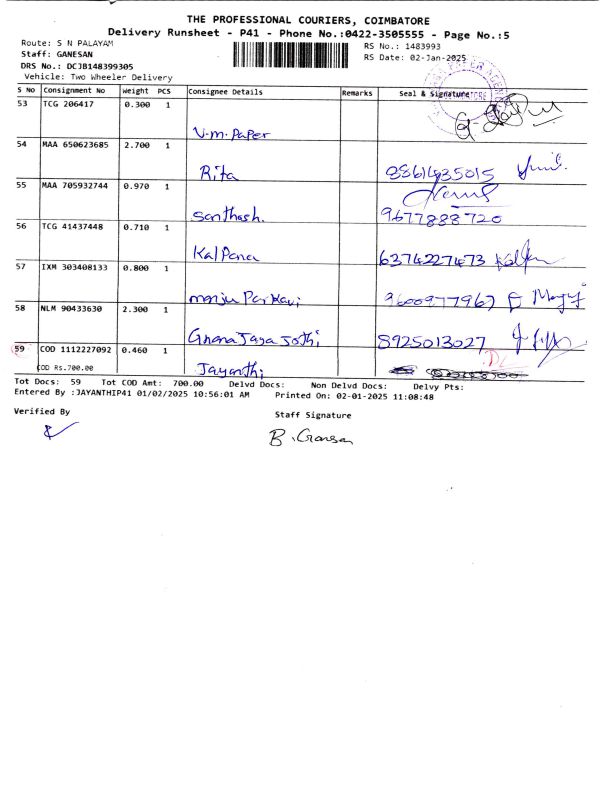 THE PROFESSIONAL COURIERS, COIMBATORE
Delivery Runsheet - P41 - Phone No.:0422-3505555 - Page No.:5
Route: S N PALAYAM
RS No.: 1483993
Staff: GANESAN
RS Date: 02-Jan-2025
DRS No.: DCJB148399305
Vehicle: Two Wheeler Delivery
S No Consignment No Weight PCS Consignee Details Remarks Seal & Signature
53 TCG 206417 0.300 1
V.M. Paper
54 MAA 650623685 2.700 1
Rita 8861435015
55 MAA 705932744 0.970 1
Santhosh. 9677888720
56 TCG 41437448 0.710 1
Kalpana 6374227473
57 IXM 303408133 0.800 1
manju Parkavi 9600977967
58 NLM 90433630 2.300 1
Gnana Jaya Jothi 8925013027
59 COD 1112227092 0.460 1
COD Rs.700.00 Jayanthi
Tot Docs: 59 Tot COD Amt: 700.00 Delvd Docs: Non Delvd Docs: Delvy Pts:
Entered By :JAYANTHIP41 01/02/2025 10:56:01 AM Printed On: 02-01-2025 11:08:48
Verified By
Staff Signature
B. Ganesan